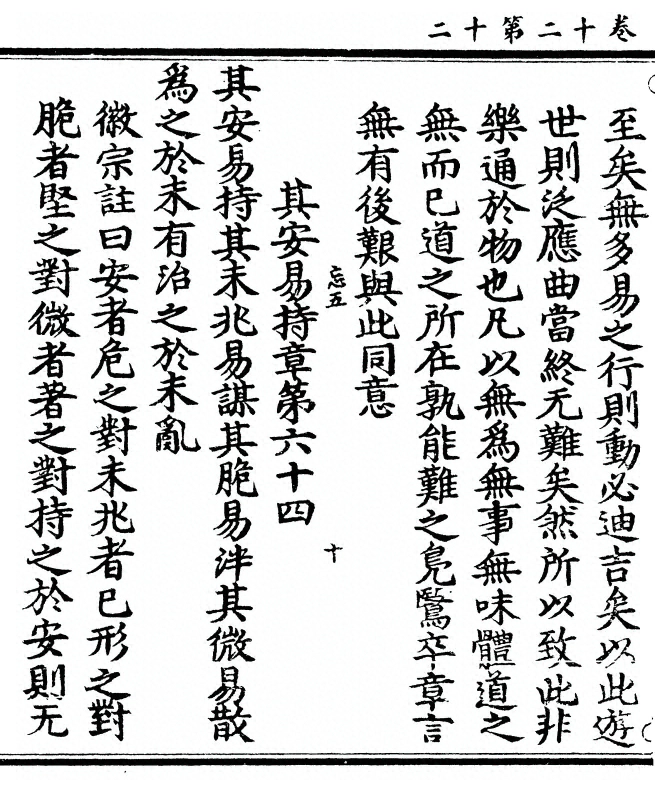 卷十二第十二
至矣無多易之行則動必迪吉矣以此遊
世則泛應曲當終无難矣然所以致此非
樂通於物也凡以無爲無事無味體道之
無而已道之所在孰能難之鳧鷖卒章言
無有後艱與此同意
忘五
十
其安易持章第六十四
其安易持其未兆易謀其脆易泮其微易散
爲之於未有治之於未亂
徽宗註曰安者危之對未兆者已形之對
脆者堅之對微者著之對持之於安則无